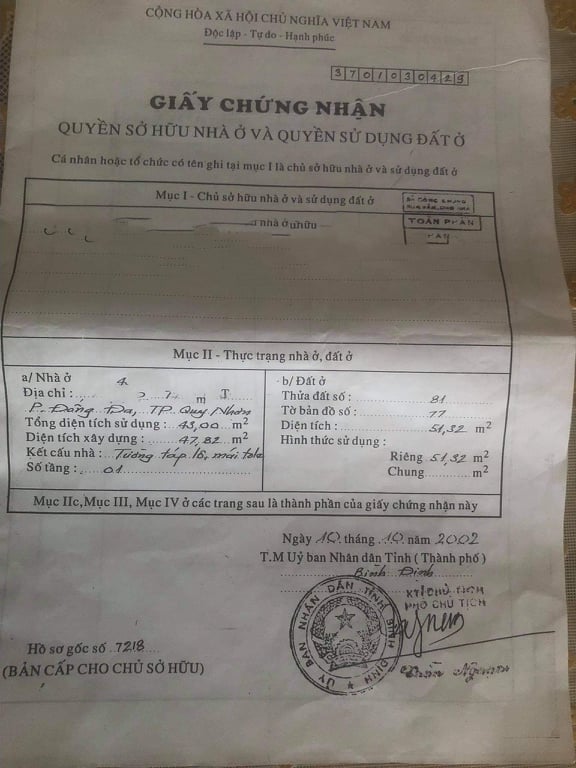 CỘNG HÒA XÃ HỘI CHỦ NGHĨA VIỆT NAM
Độc lập - Tự do - Hạnh phúc
3701030429
GIẤY CHỨNG NHẬN
QUYỀN SỞ HỮU NHÀ Ở VÀ QUYỀN SỬ DỤNG ĐẤT Ở
Cá nhân hoặc tổ chức có tên ghi tại mục I là chủ sở hữu nhà ở và sử dụng đất ở
Mục I - Chủ sở hữu nhà ở và sử dụng đất ở
TOÀN PHẦN
nhà ở
Mục II - Thực trạng nhà ở, đất ở
a/ Nhà ở
Địa chỉ :
P. Đống Đa, TP. Quy Nhơn
Tổng diện tích sử dụng : 43,00 m²
Diện tích xây dựng : 47,82 m²
Kết cấu nhà : Tường táp lô, mái tole
Số tầng : 01
b/ Đất ở
Thửa đất số : 81
Tờ bản đồ số : 77
Diện tích : 51,32 m²
Hình thức sử dụng :
Riêng 51,32 m²
Chung m²
Mục IIc, Mục III, Mục IV ở các trang sau là thành phần của giấy chứng nhận này
Ngày 10 tháng 10 năm 2002
T.M Uỷ ban Nhân dân Tỉnh ( Thành phố )
Bình Định
KT/CHỦ TỊCH
PHÓ CHỦ TỊCH
ỦY BAN NHÂN DÂN TỈNH BÌNH ĐỊNH
Hồ sơ gốc số 7218
(BẢN CẤP CHO CHỦ SỞ HỮU)